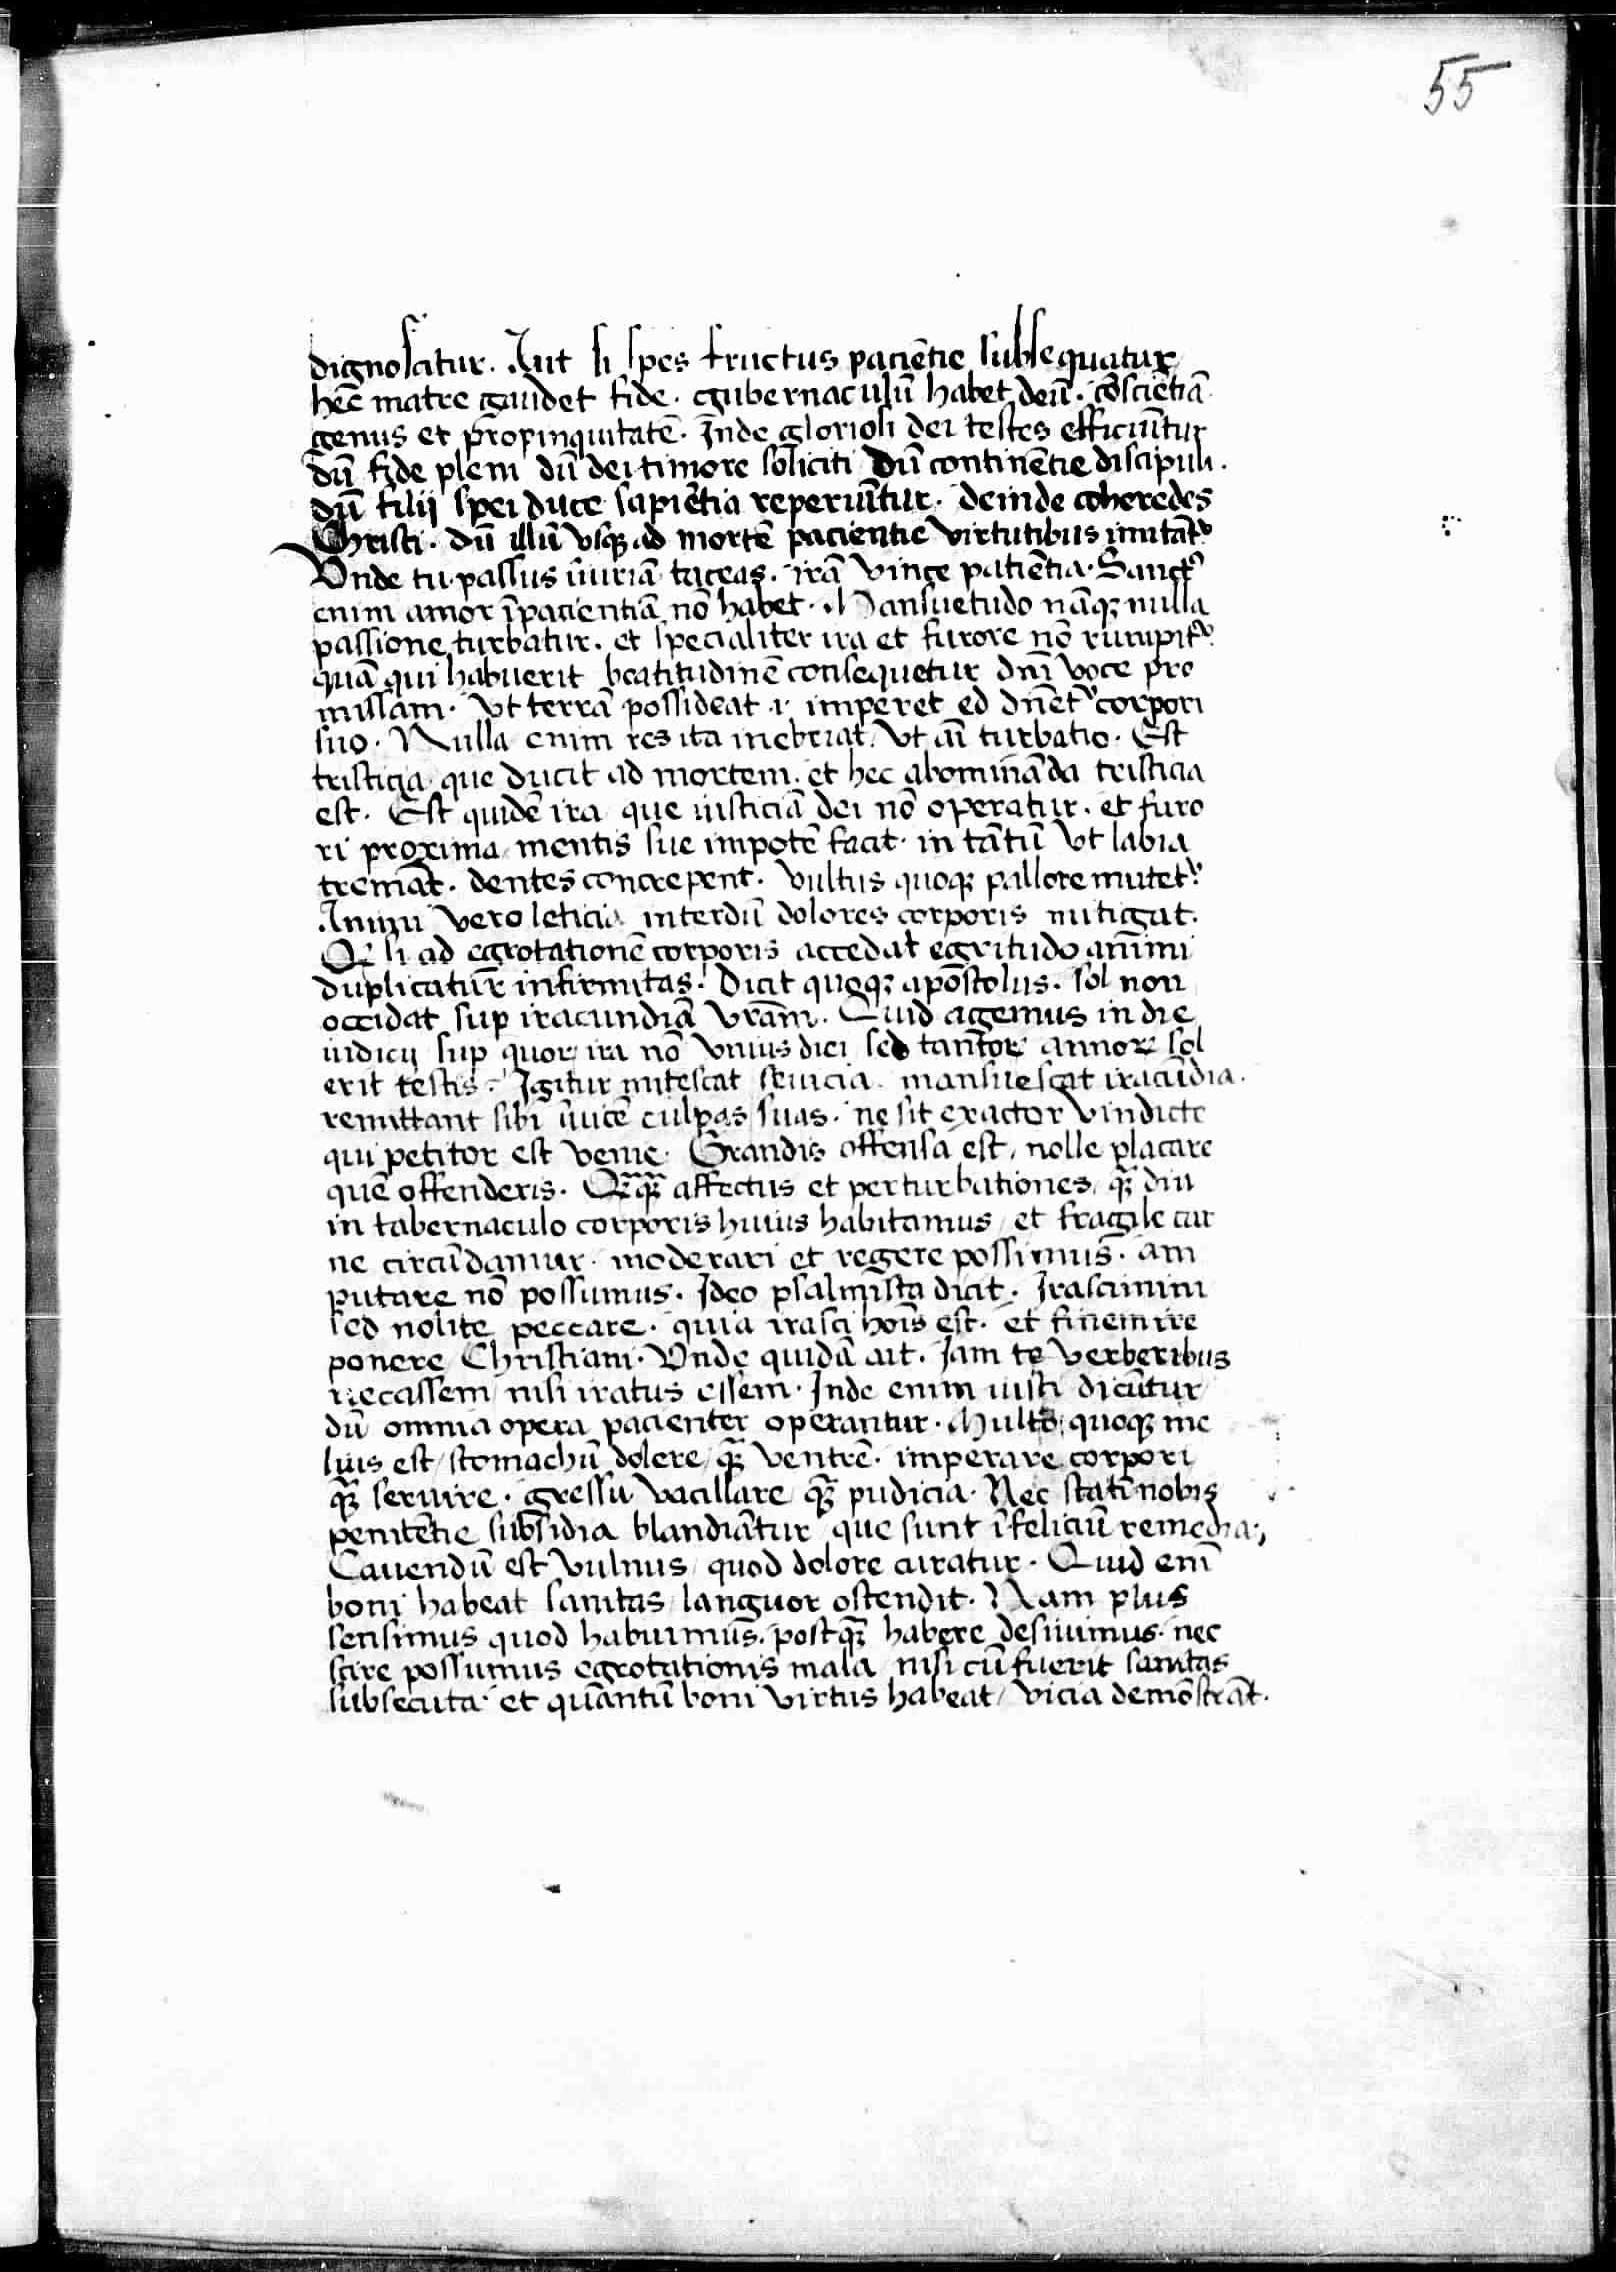 55
dignoscitur. Aut si spes fructus paciẽtie subsequatur
hẽc matre gaudet fide. gubernaculũ habet deũ. cõsciẽtiã
genus et propinquitatẽ. Inde gloriosi dei testes efficiũtur
dũ fide pleni dũ dei timore soliciti Dũ continẽtie discipuli.
dũ filij spei duce sapiẽtia reperiũtur. deinde coheredes
Christi. dũ illũ vsqꝫ ad mortẽ pacientie virtutibus imitãtᷣ
Vnde tu passus iniuriã taceas. irã vince patiẽtia. Sanctꝰ
enim amor ĩpacientiã nõ habet. Mansuetudo nãqꝫ nulla
passione turbatur. et specialiter ira et furore nõ rumpitᷣ
quã qui habuerit beatitudinẽ consequetur dñi voce pro
missam. Vt terrã possideat .i. imperet ed dñetᷣ corpori
suo. Nulla enim res ita inebriat. Vt aĩ turbatio. Est
tristicia que ducit ad mortem. et hec abominãda tristicia
est. Est quidẽ ira que iusticiã dei nõ operatur. et furo
ri proxima mentis sue impotẽ facit. in tãtũ Vt labia
tremãt. dentes concrepent. Vultus quoqꝫ pallore mutetᷣ
Animi vero leticia interdũ dolores corporis mitigat.
Qꝫ si ad egrotationẽ corporis accedat egritudo animi
duplicatur infirmitas. Dicit quoqꝫ apostolus. Sol non
occidat sup iracundiã vrãm. Quid agemus in die
iudicij sup quoꝝ ira nõ vnius diei sed tantoꝝ annoꝝ sol
erit testis. Igitur mitescat seuicia. mansuescat iracũdia.
remittant sibi ĩuicẽ culpas suas. ne sit exactor vindicte
qui petitor est venie. Grandis offensa est, nolle placare
quẽ offenderis. Qꝫqꝫ affectus et perturbationes, qꝫ diu
in tabernaculo corporis huius habitamus, et fragile car
ne circũdamur. moderari et regere possimus. am
putare nõ possumus. Ideo psalmista dicit. Irascimini
sed nolite peccare. quia irasci hoĩs est. et finem ire
ponere Christiani. Vnde quidã ait. Jam te verberibus
necassem nisi iratus essem. Inde enim iusti dicũtur
dũ omnia opera pacienter operantur. Multo quoqꝫ me
lius est stomachũ dolere qꝫ ventrẽ. imperare corpori
qꝫ seruire. gressu vacillare qꝫ pudicia. Nec statĩ nobis
penitẽtie subsidia blandiãtur que sunt ĩfeliciũ remedia;
Cauendũ est vulnus quod dolore curatur. Quid enĩ
boni habeat sanitas languor ostendit. Nam plus
sensimus quod habuimus. postqꝫ habere desiuimus. nec
scire possumus egrotationis mala nisi cũ fuerit sanitas
subsecuta. et quantũ boni virtus habeat, vicia demõstrãt.